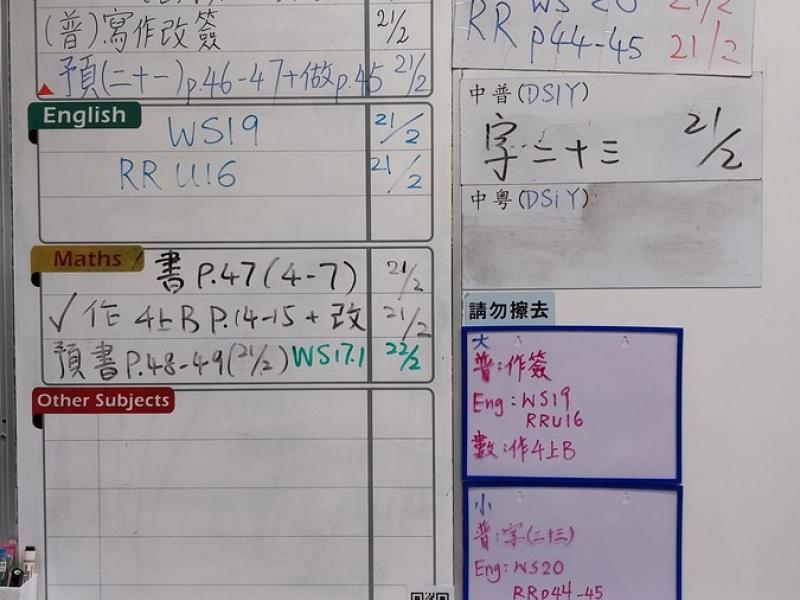 (普)寫作改簽 21/2
預(二十一)p.46-47+做p.45 21/2
English
WS19 21/2
RR U16 21/2
Maths
書 P.47(4-7) 21/2
✓作 4上B P.14-15 + 改 21/2
預書P.48-49(21/2) WS17.1 22/2
Other Subjects
RR WS 20 21/2
p44-45 21/2
中普(DSIY)
字二十三 21/2
中粵(DSiY)
請勿擦去
大
普:作簽
Eng: WS19
RRU16
數:作4上B
小
普:字(二十三)
Eng: WS20
RRp44-45